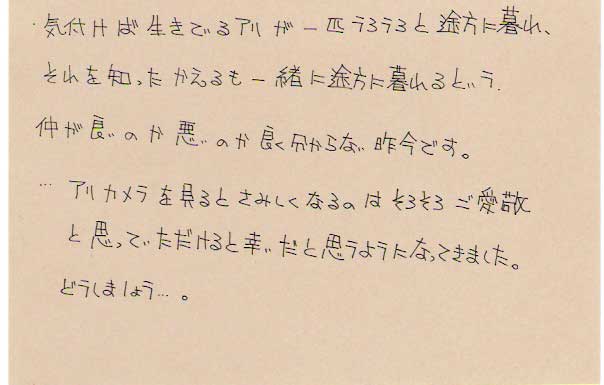 ・気付けば生きているアリが一匹うろうろと途方に暮れ、
それを知ったかえるも一緒に途方に暮れるという
仲が良いのか悪いのか良く分からない昨今です。
… アリカメラを見るとさみしくなるのはそろそろご愛敬
と思っていただけると幸いだと思うようになってきました。
どうしましょう…。